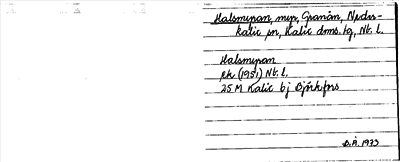 Halsmyran, myr, Granån, Neder-
kalix sn, Kalix dms. tg, Nb. l.
Halsmyran
ek (1951) Nb. l.
25 M Kalix bj Björkfors
B.Å. 1973